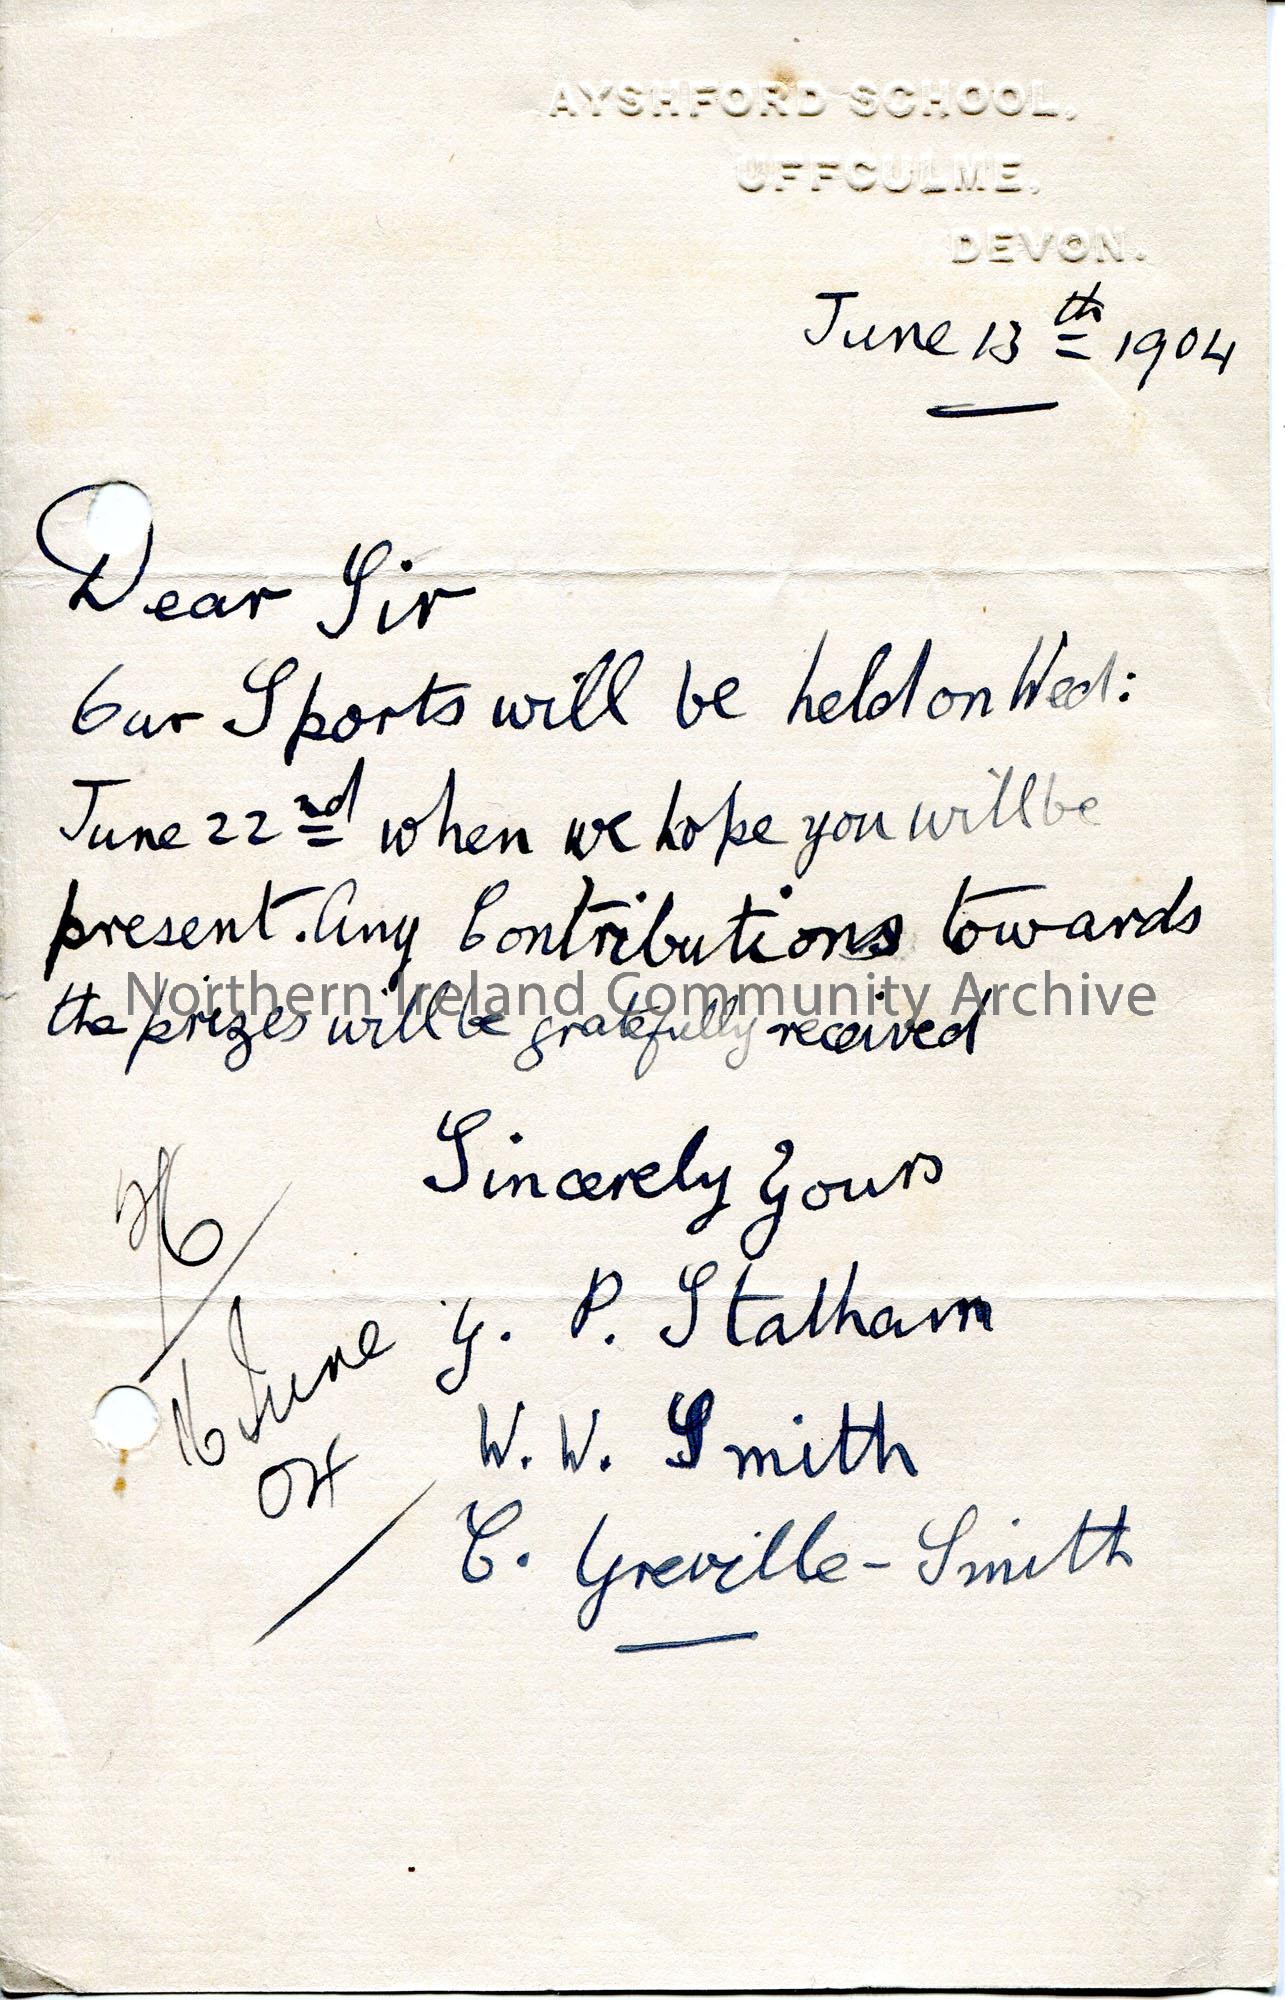 AYSHFORD SCHOOL,
UFFCULME,
DEVON.
June 13th 1904
Dear Sir
Our Sports will be held on Wed:
June 22nd when we hope you will be
present. Any Contributions towards
the prizes will be gratefully received
Northern Ireland Community Archive
Sincerely Yours
G. P. Statham
W. W. Smith
C. Greville-Smith
16 June
04